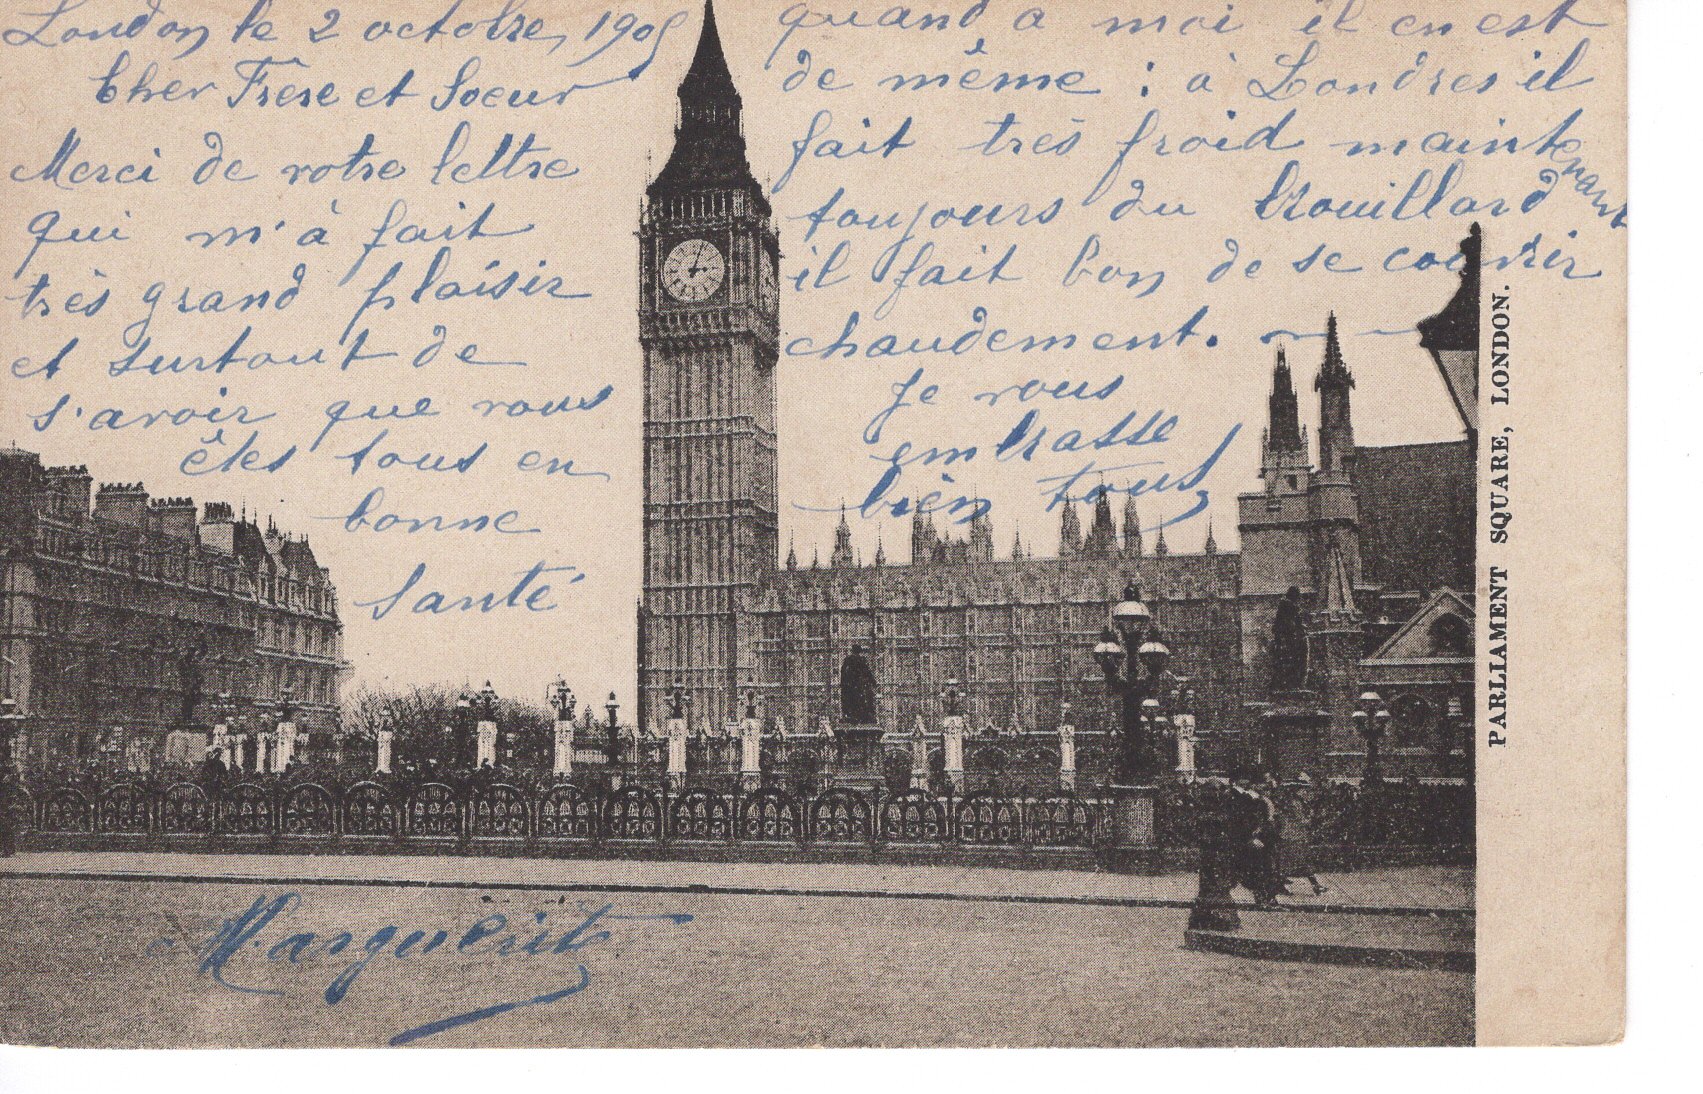 London le 2 octobre, 1905
Cher Frère et Soeur
Merci de votre lettre
qui m'à fait
très grand plaisir
et surtout de
s'avoir que vous
êtes tous en
bonne
santé
quand a moi il en est
de même : à Londres il
fait très froid maintenant
toujours du brouillard
il fait bon de se couvrir
chaudement.
Je vous
embrasse
bien tous
Marguerite
PARLIAMENT SQUARE, LONDON.